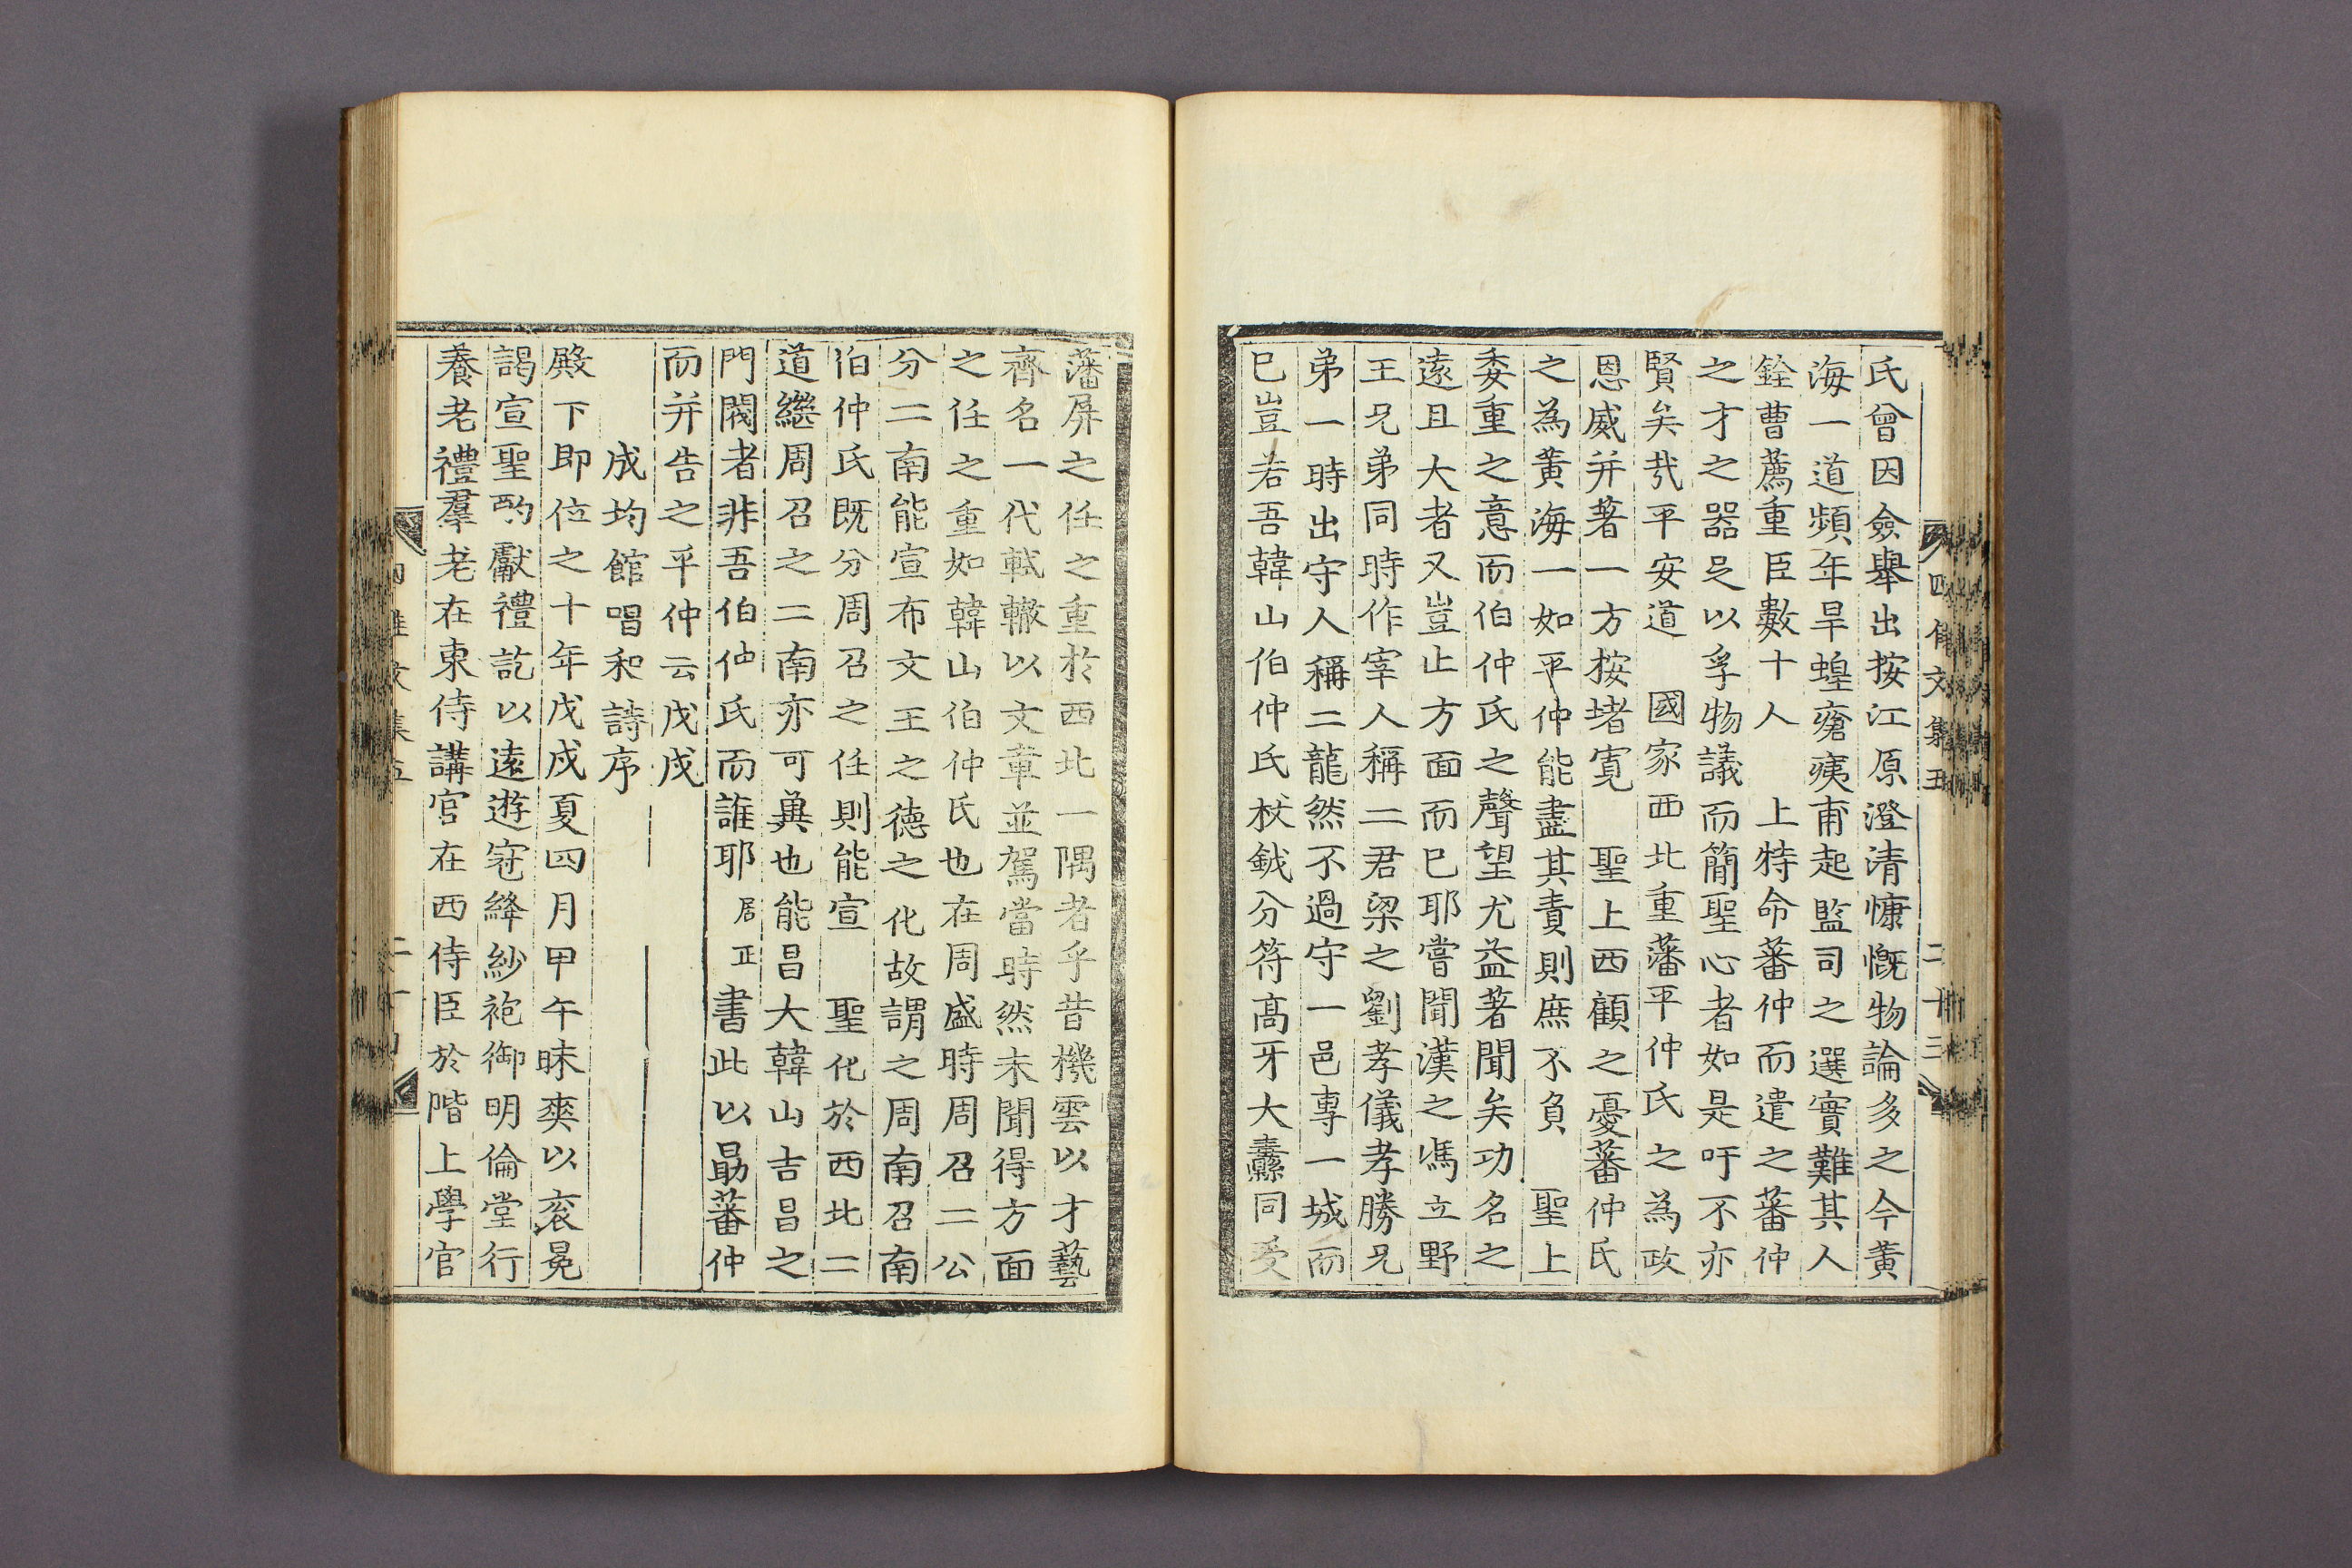 四佳文集五
二十三
氏曾因僉舉出按江原澄清慷慨物論多之今黃
海一道頻年旱蝗瘡痍甫起監司之選實難其人
銓曹薦重臣數十人 上特命蕃仲而遣之蕃仲
之才之器足以孚物議而簡聖心者如是吁不亦
賢矣㢤平安道 國家西北重藩平仲氏之為政
恩威并著一方按堵寬 聖上西顧之憂蕃仲氏
之為黃海一如平仲能盡其責則庶不負 聖上
委重之意而伯仲氏之聲望尤益著聞矣功名之
遠且大者又豈止方面而已耶嘗聞漢之馮立野
王兄弟同時作宰人稱二君梁之劉孝儀孝勝兄
弟一時出守人稱二龍然不過守一邑專一城而
已豈若吾韓山伯仲氏杖鉞分符高牙大纛同受
藩屏之任之重於西北一隅者乎昔機雲以才藝
齊名一代軾轍以文章並駕當時然未聞得方面
之任之重如韓山伯仲氏也在周盛時周召二公
分二南能宣布文王之德之化故謂之周南召南
伯仲氏既分周召之任則能宣 聖化於西北二
道繼周召之二南亦可兾也能昌大韓山吉昌之
門閥者非吾伯仲氏而誰耶居正書此以勗蕃仲
而并告之平仲云戊戌
成均館唱和詩序
殿下即位之十年戊戌夏四月甲午昧爽以衮冕
謁宣聖酌獻禮訖以遠遊冠絳紗袍御明倫堂行
養老禮羣老在東侍講官在西侍臣於階上學官